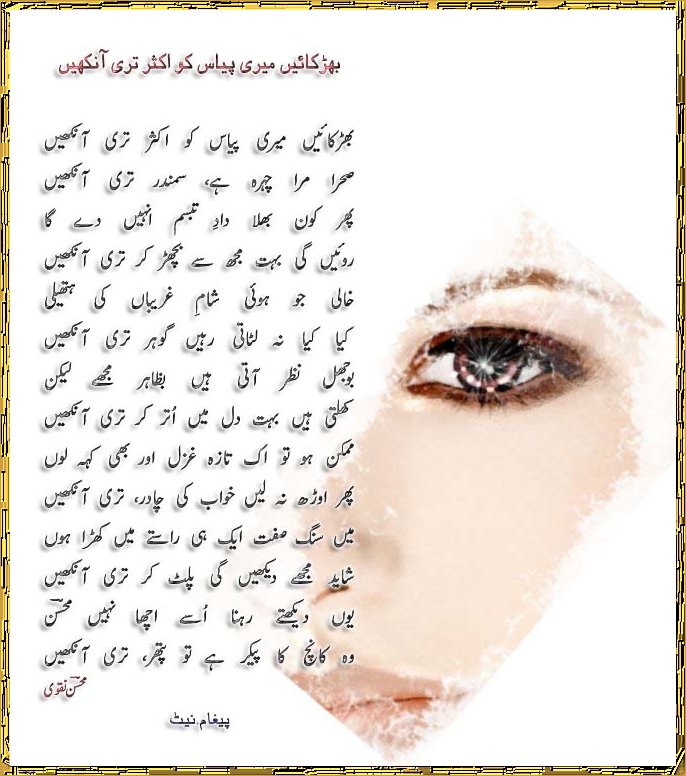 بھڑکائیں میری پیاس کو اکثر تری آنکھیں
بھڑکائیں میری پیاس کو اکثر تری آنکھیں
صحرا مرا چہرہ ہے، سمندر تری آنکھیں
پھر کون بھلا دادِ تبسم انہیں دے گا
روئیں گی بہت مجھ سے بچھڑ کر تری آنکھیں
خالی جو ہوئی شامِ غریباں کی ہتھیلی
کیا کیا نہ لٹاتی رہیں گوہر تری آنکھیں
بوجھل نظر آتی ہیں بظاہر مجھے لیکن
کھلتی ہیں بہت دل میں اُتر کر تری آنکھیں
ممکن ہو تو اک تازہ غزل اور بھی کہہ لوں
پھر اوڑھ نہ لیں خواب کی چادر، تری آنکھیں
میں سنگ صفت ایک ہی راستے میں کھڑا ہوں
شاید مجھے دیکھیں گی پلٹ کر تری آنکھیں
یوں دیکھتے رہنا اُسے اچھا نہیں محسنؔ
وہ کانچ کا پیکر ہے تو پتھر، تری آنکھیں
محسنؔ نقوی
پیغام.نیٹ